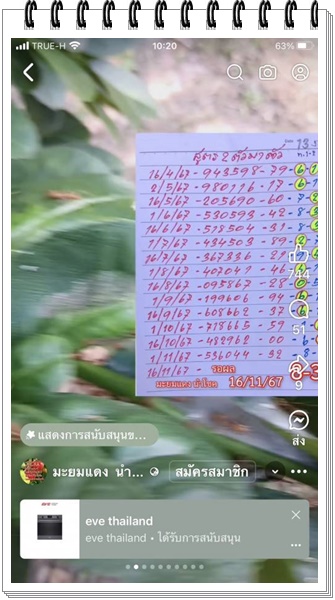 TRUE-H 10:20 63%
สูตร 2 ตัวมาตัว
16/4/67 - 943598 - 79 - 6
2/5/67 - 980116 - 17 - 6
16/5/67 - 205690 - 60 - 7
1/6/67 - 530593 - 42 - 8
16/6/67 - 518504 - 31 - 8
1/7/67 - 434503 - 89 - 2
16/7/67 - 367336 - 21
1/8/67 - 407041 - 46
16/8/67 - 095867 - 28 - 0
1/9/67 - 199606 - 94
16/9/67 - 608662 - 37
1/10/67 - 718665 - 59
16/10/67 - 482962 - 00 - 6
1/11/67 - 536044 - 32
16/11/67 - รอผล
มะยมแดง นำโชค 16/11/67
744
51
9
ส่ง
แสดงการสนับสนุนข...
มะยมแดง นำ... สมัครสมาชิก
eve thailand
eve thailand • ได้รับการสนับสนุน